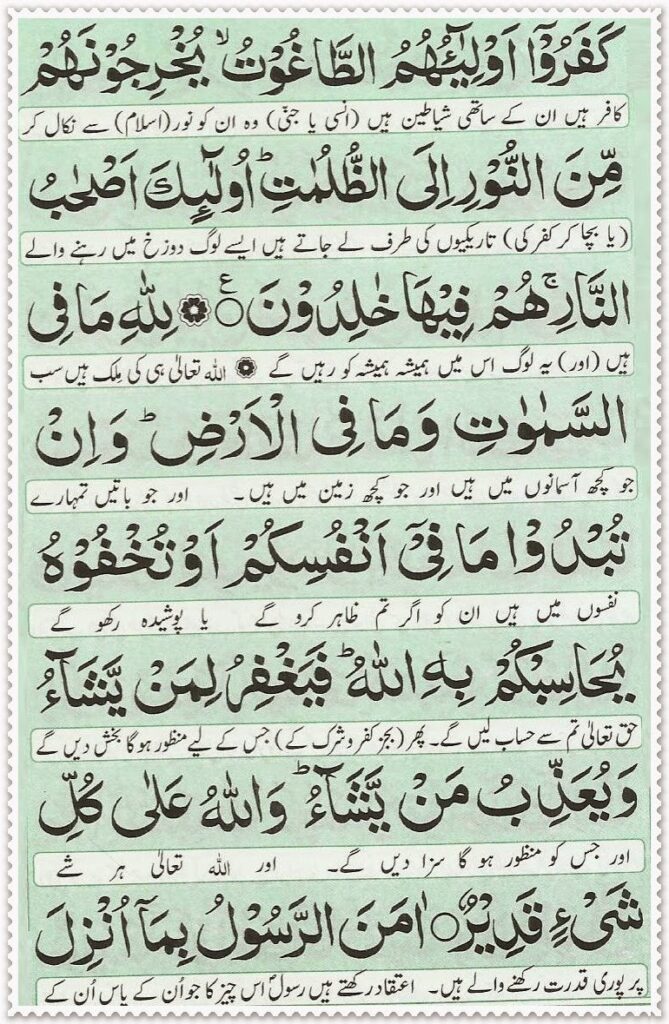 كَفَرُوْٓا اَوْلِيٰٓـُٔهُمُ الطَّاغُوْتُ ۙ يُخْرِجُوْنَهُمْ
کافر ہیں ان کے ساتھی شیاطین ہیں (انسی یا جنّی) وہ ان کو نور (اسلام) سے نکال کر
مِّنَ النُّوْرِ اِلَى الظُّلُمٰتِ ؕ اُولٰٓئِكَ اَصْحٰبُ
(یا بچا کر کفر کی) تاریکیوں کی طرف لے جاتے ہیں ایسے لوگ دوزخ میں رہنے والے
النَّارِ ۚ هُمْ فِيْهَا خٰلِدُوْنَ ۝ ع لِلّٰهِ مَا فِى
ہیں (اور) یہ لوگ اس میں ہمیشہ ہمیشہ کو رہیں گے اللہ تعالیٰ ہی کی مِلک ہیں سب
السَّمٰوٰتِ وَمَا فِى الْاَرْضِ ؕ وَاِنْ
جو کچھ آسمانوں میں ہیں اور جو کچھ زمین میں ہیں۔ اور جو باتیں تمہارے
تُبْدُوْا مَا فِىْٓ اَنْفُسِكُمْ اَوْ تُخْفُوْهُ
نفسوں میں ہیں ان کو اگر تم ظاہر کرو گے یا پوشیدہ رکھو گے
يُحَاسِبْكُمْ بِهِ اللّٰهُ ؕ فَيَغْفِرُ لِمَنْ يَّشَآءُ
حق تعالیٰ تم سے حساب لیں گے۔ پھر (بجز کفر و شرک کے) جس کے لیے منظور ہو گا بخش دیں گے
وَيُعَذِّبُ مَنْ يَّشَآءُ ؕ وَاللّٰهُ عَلٰى كُلِّ
اور جس کو منظور ہو گا سزا دیں گے۔ اور اللہ تعالیٰ ہر شے
شَىْءٍ قَدِيْرٌ ۝ اٰمَنَ الرَّسُوْلُ بِمَآ اُنْزِلَ
پر پوری قدرت رکھنے والے ہیں۔ اعتقاد رکھتے ہیں رسولؐ اس چیز کا جو اُن کے پاس اُن کے